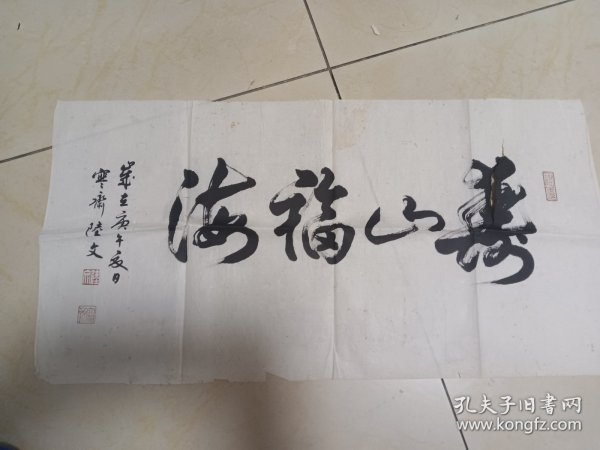 壽山福海
歲在庚午夏日
寒齋陸文
孔夫子旧书网
www.kongfz.com